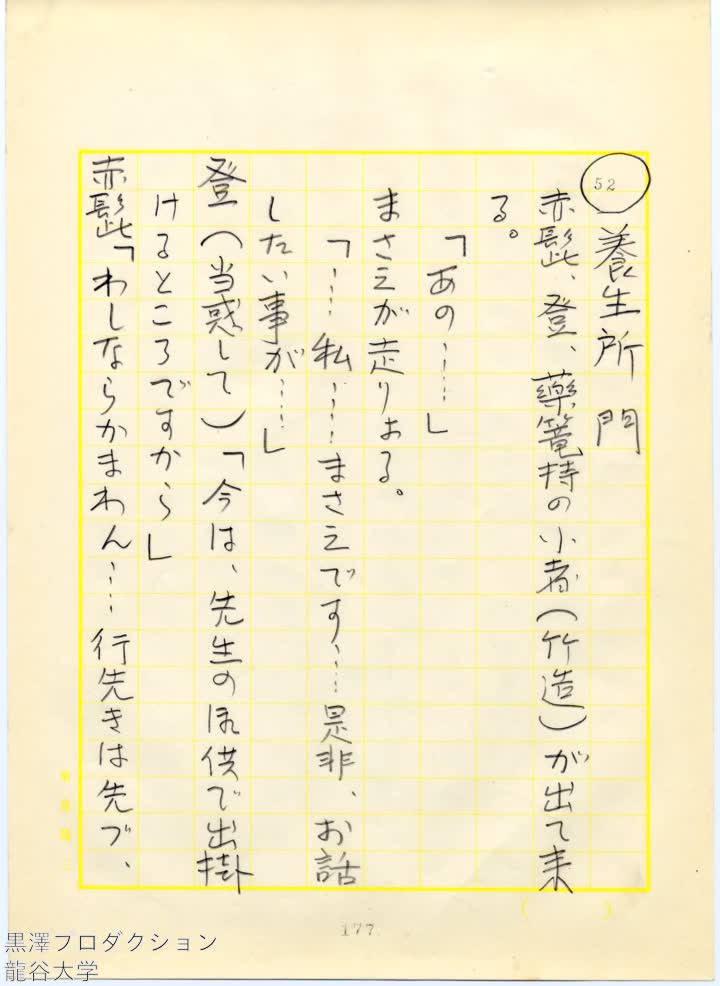 52
養生所 門
赤髭、登、藥篭持の小者(竹造)が出て来
る。
「あの……」
まさえが走りよる。
「……私……まさえです……是非、お話
したい事が……」
登(当惑して)「今は、先生のお供で出掛
けるところですから」
赤髭「わしならかまわん……行先きは先づ、
177
黒澤プロダクション
龍谷大学